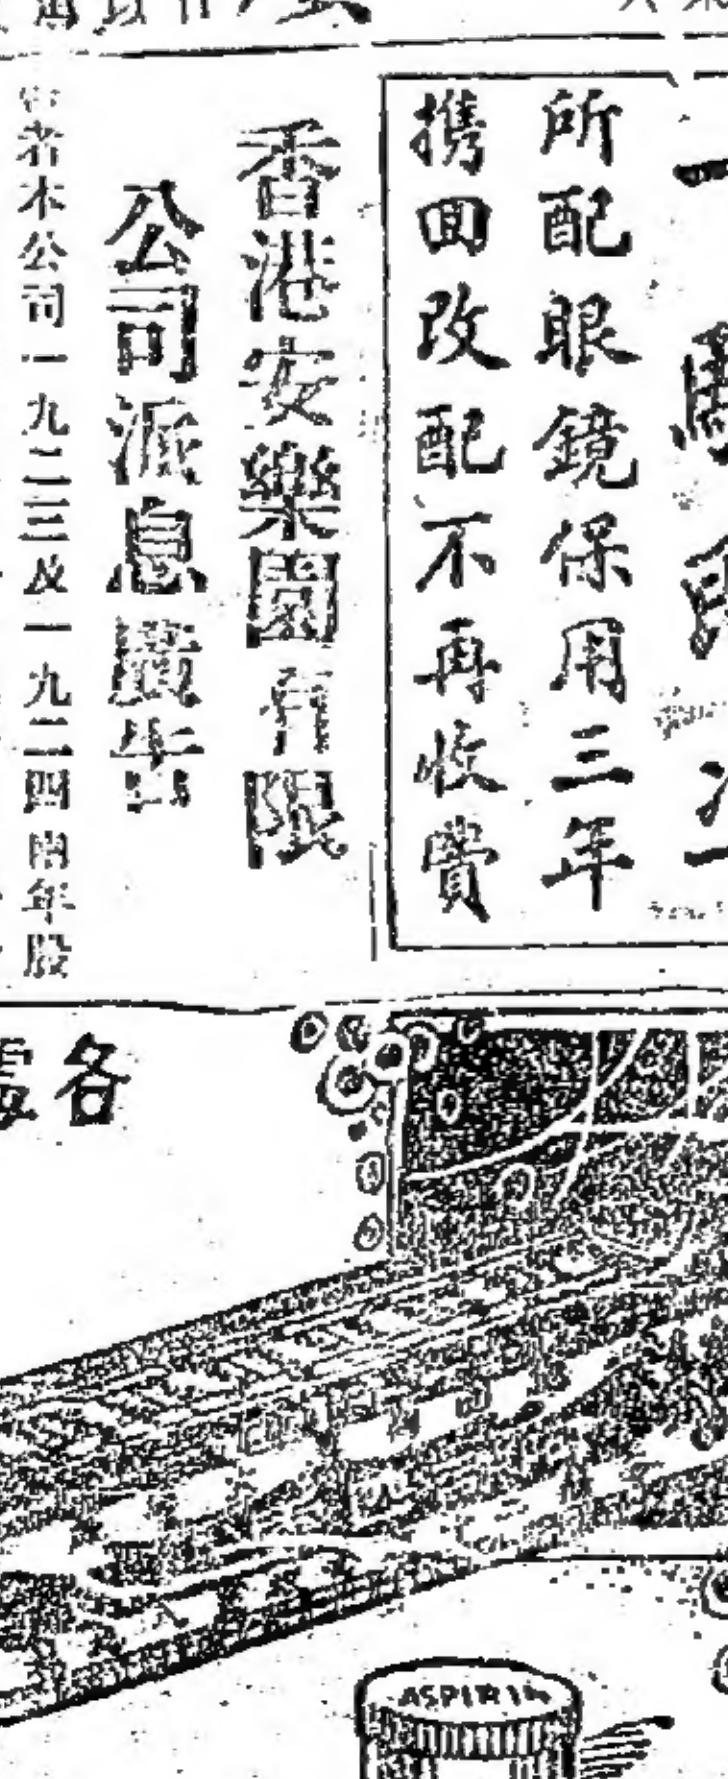 所配眼鏡保用三年
携回改配不再收費
香港安樂園有限
公司派息廣告
者本公司一九二三及一九二四兩年股
各處
ASPIRIN